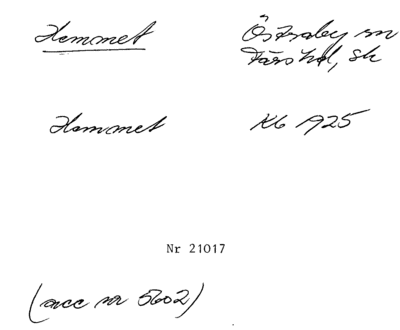 Hemmet
Östraby sn
Färs hd, Sk
Hemmet
Kb 1925
Nr 21017
(acc nr 5602)